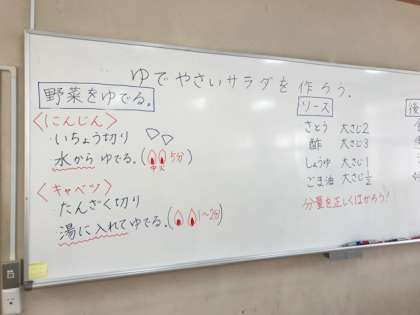 ゆでやさいサラダを作ろう。
野菜をゆでる。
〈にんじん〉
いちょう切り
水からゆでる。(中火 5分)
〈キャベツ〉
たんざく切り
湯に入れてゆでる。(1〜2分)
ソース
さとう 大さじ2
酢 大さじ3
しょうゆ 大さじ1
ごま油 大さじ1/2
分量を正しくはかろう!
後